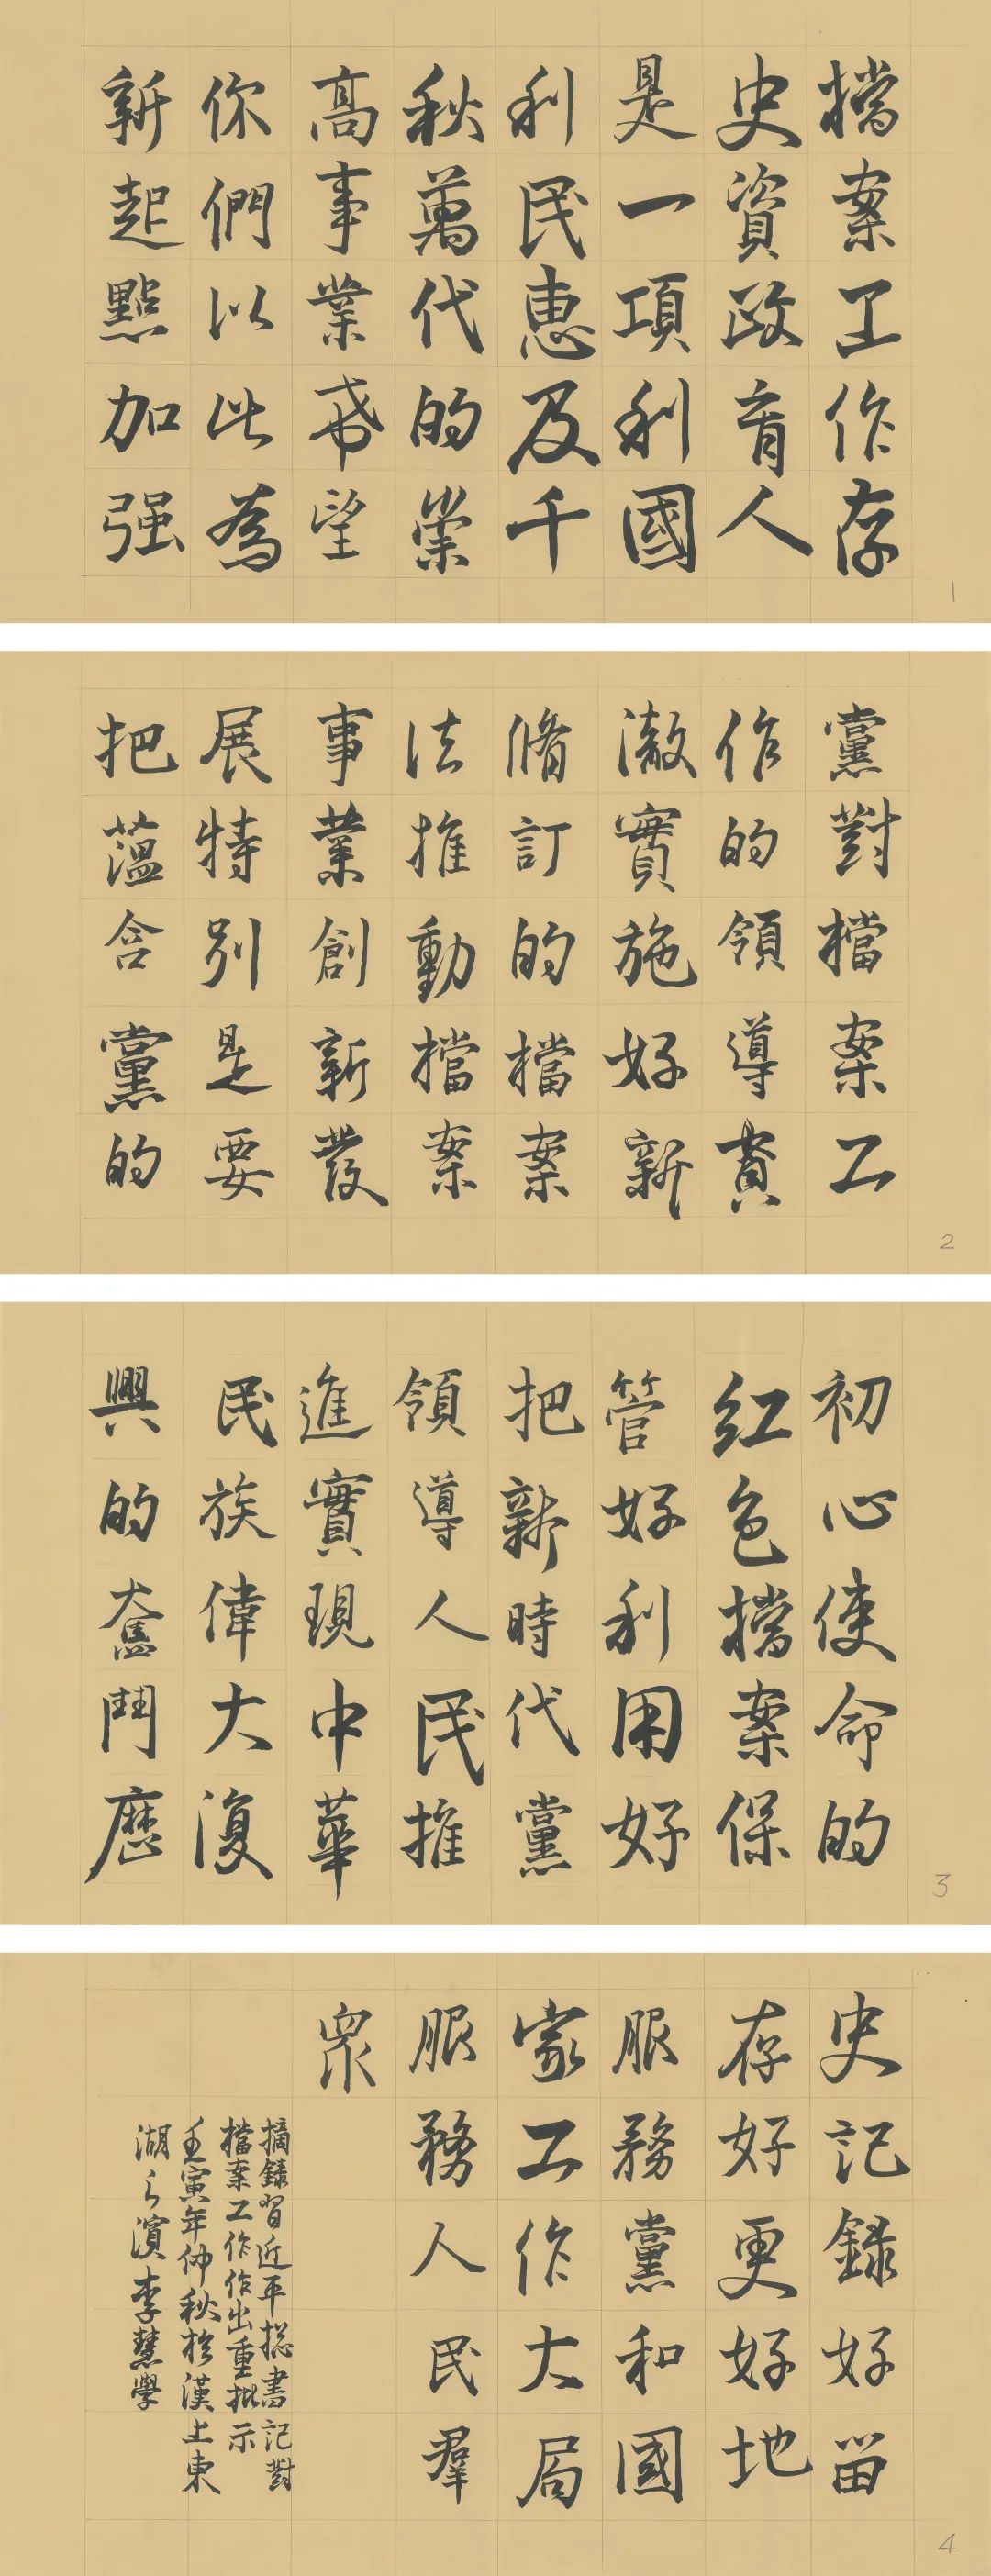 檔案工作存
史資政育人
是一項利國
利民惠及千
秋萬代的崇
高事業希望
你們以此為
新起點加强
1
黨對檔案工
作的領導貫
澈實施好新
脩訂的檔案
法推動檔案
事業創新發
展特別是要
把蕴含黨的
2
初心使命的
红色檔案保
管好利用好
把新時代黨
領導人民推
進實現中華
民族偉大復
興的奮鬥歷
3
史記錄好留
存好更好地
服務黨和國
家工作大局
服務人民羣
衆
摘錄習近平摠書記對
檔案工作作出重批示
壬寅年仲秋於漢上東
湖之濱李慧學
4